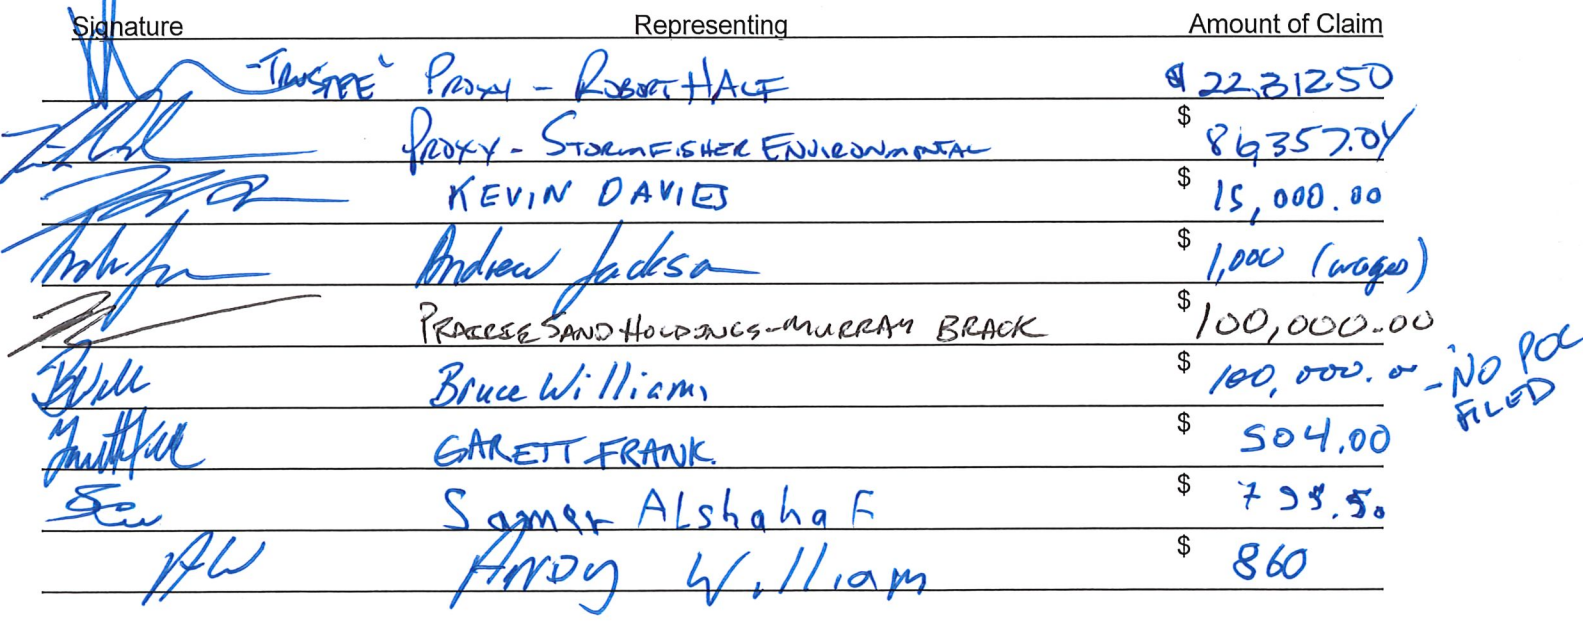 Signature Representing Amount of Claim
"TRUSTEE" PROXY - ROBERT HALF $ 22,312.50
PROXY - STORMFISHER ENVIRONMENTAL $ 357.04
KEVIN DAVIES $ 15,000.00
Andrew Jackson $ 1,000 (wages)
PRAIRIE SAND HOLDINGS - MURRAY BRACK $ 100,000.00
Bruce Williams $ 100,000.00 - NO POC
FILED
GARETT FRANK. $ 504.00
Samer ALshahaF $
AW ANDy William $ 860